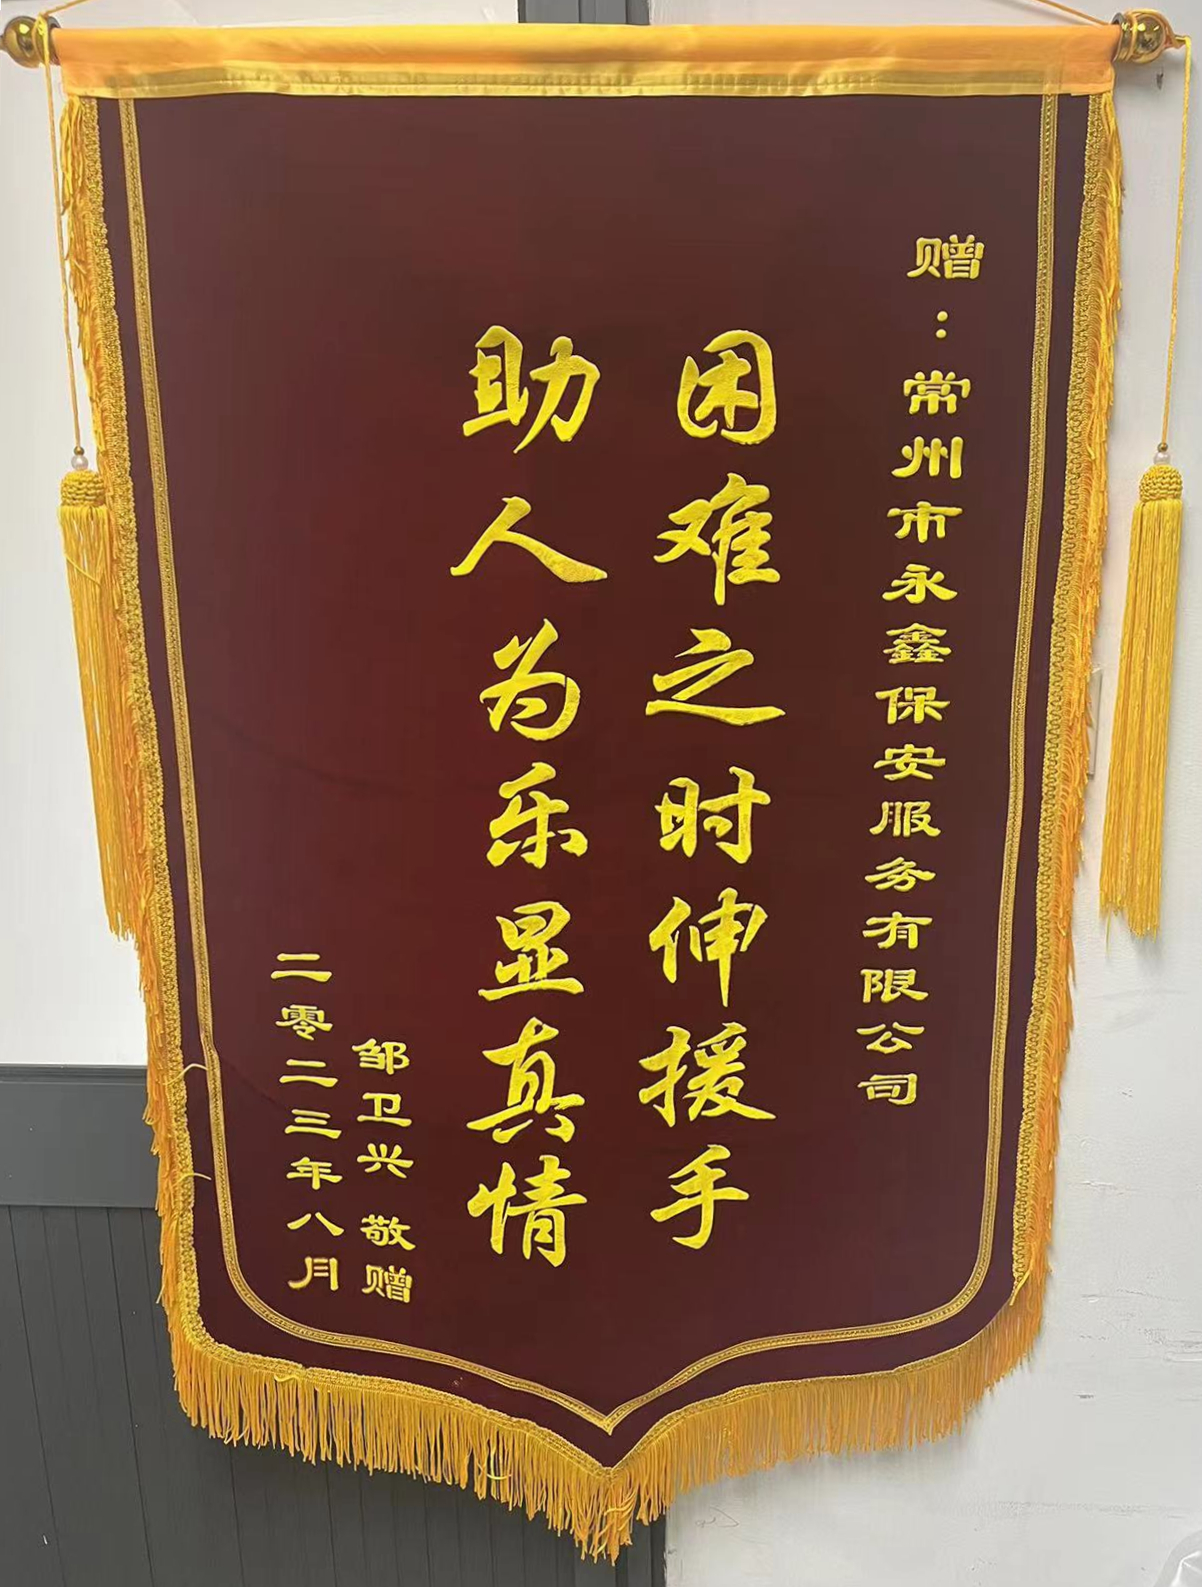 赠：常州市永鑫保安服务有限公司
困难之时伸援手
助人为乐显真情
邹卫兴 敬赠
二零二三年八月